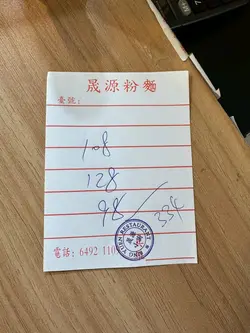 晟源粉麵
臺號:
108
128
98 / 334
YUEN RESTAURANT
電話: 6492 110